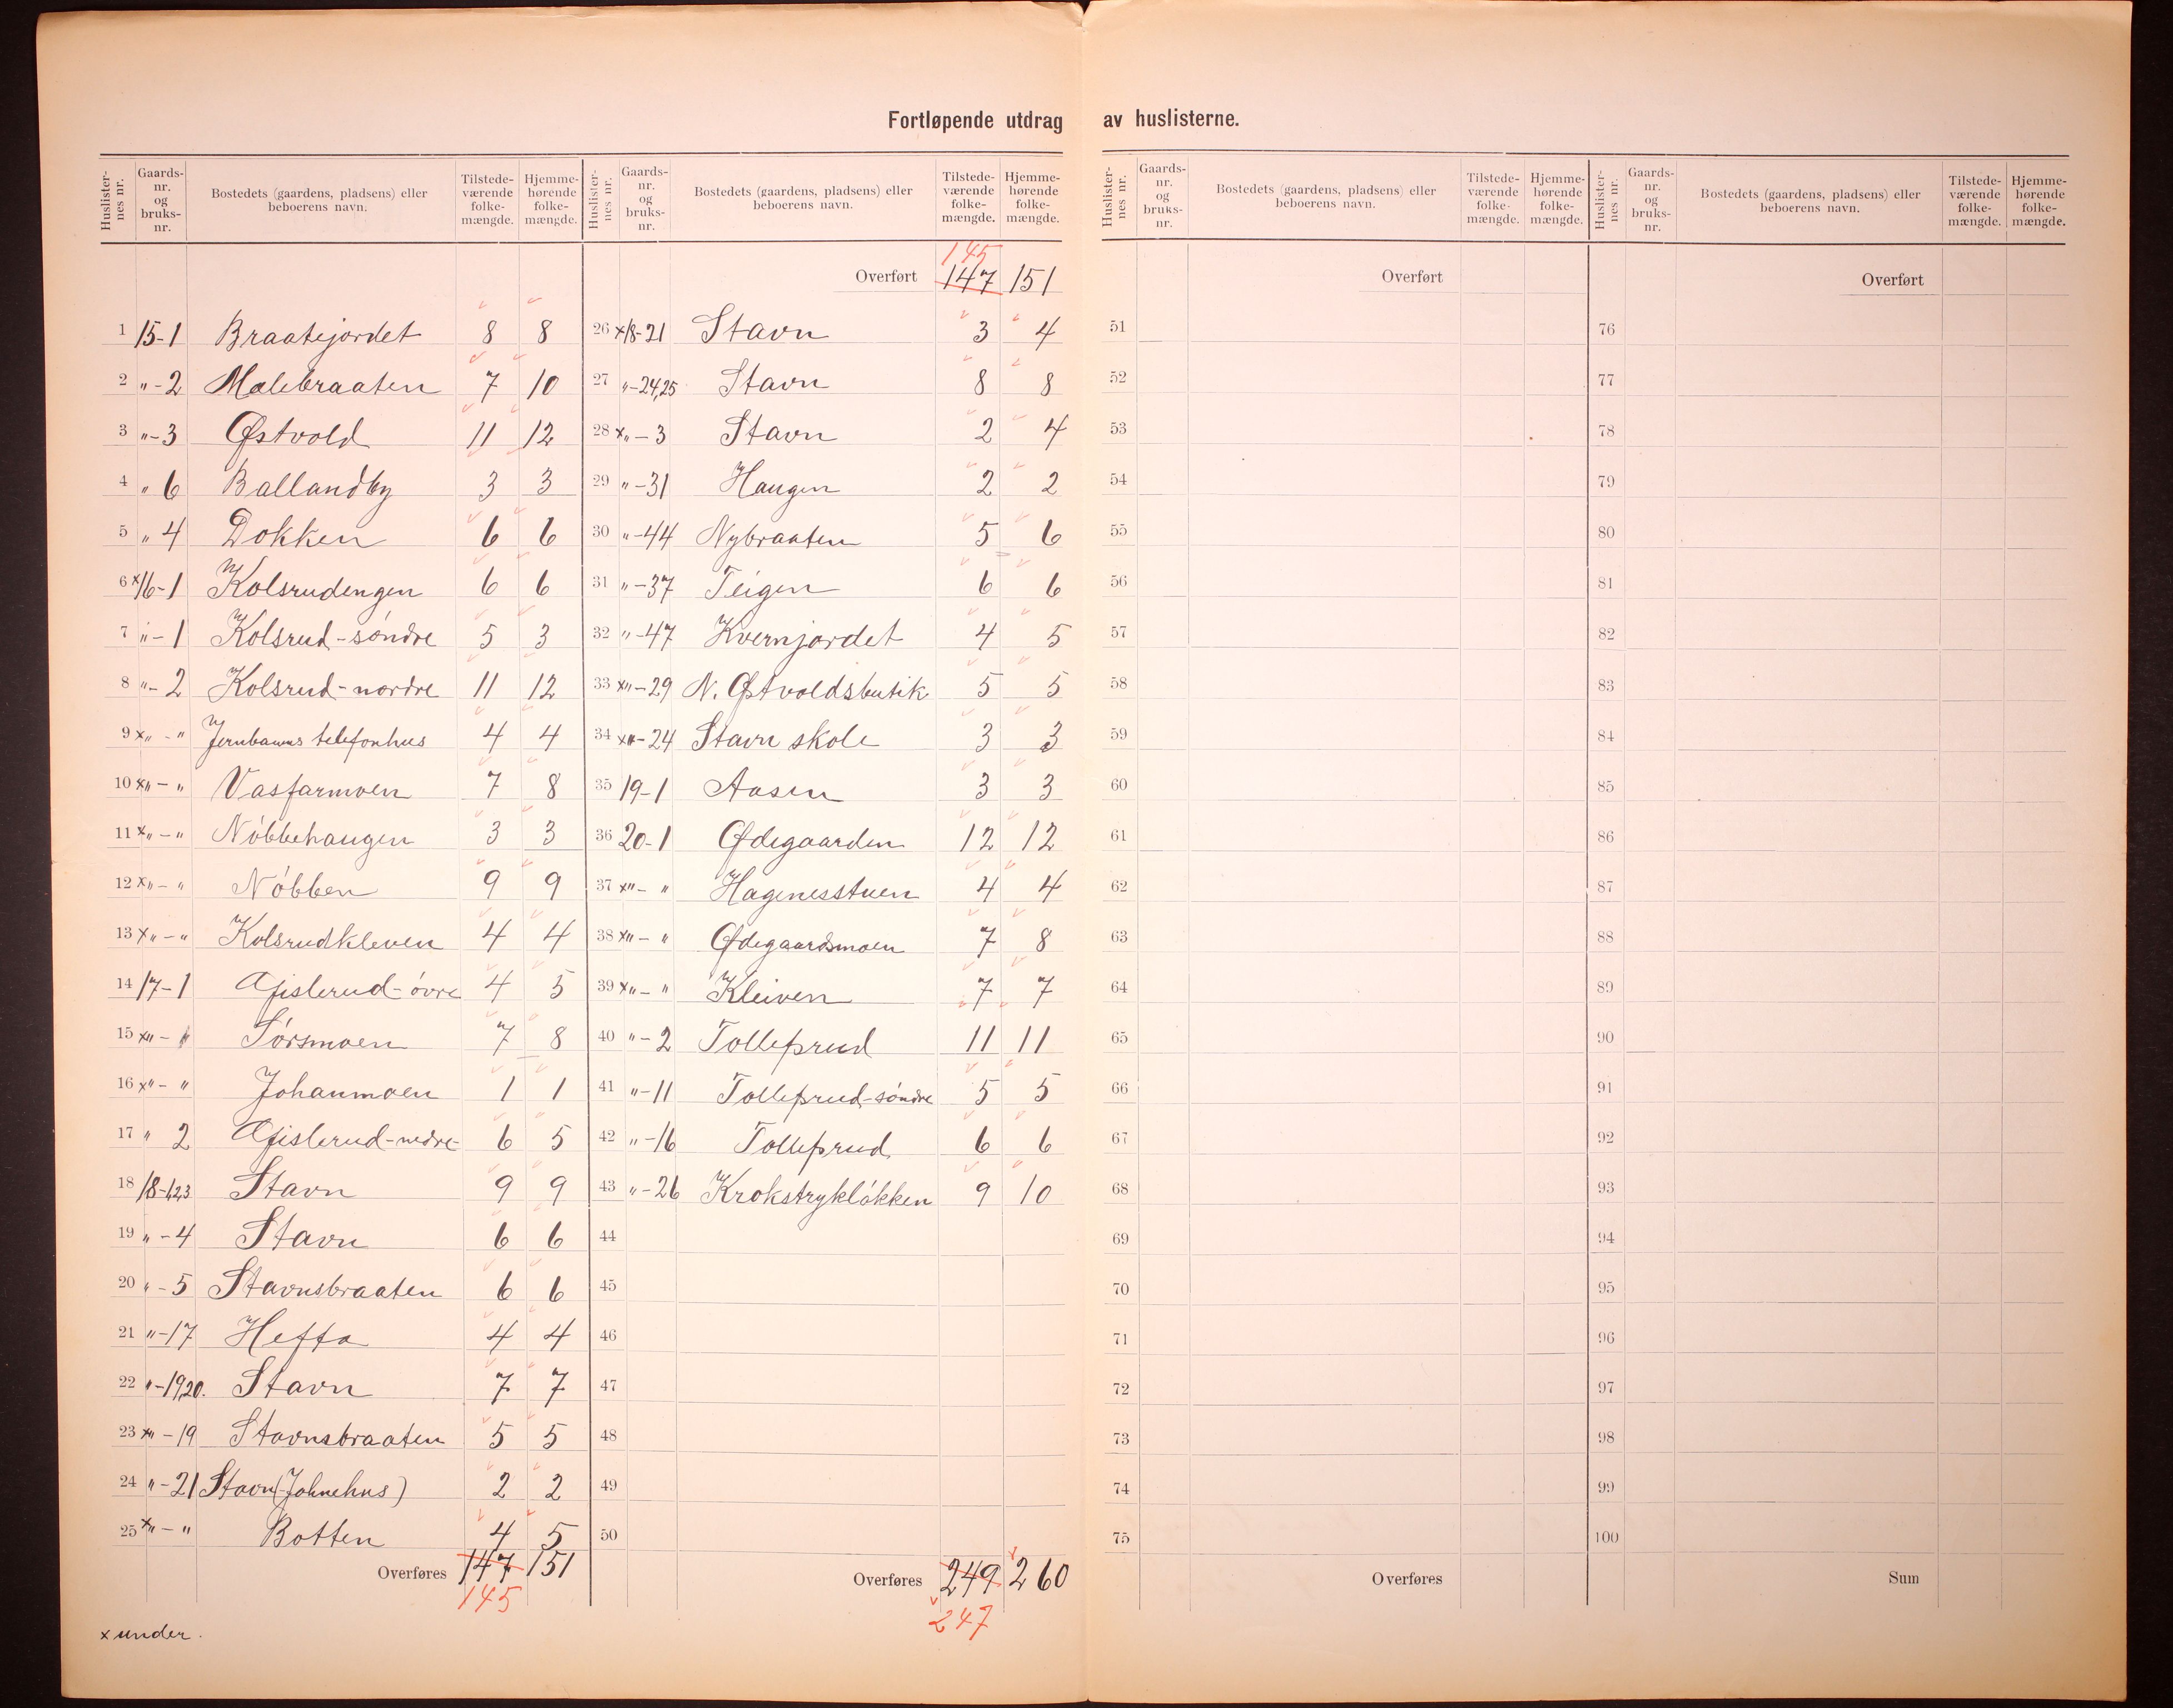 Fortløpende utdrag av huslisterne.
Huslisternes nr. Gaards-nr. og bruks-nr. Bostedets (gaardens, pladsens) eller beboerens navn. Tilstedeværende folkemængde. Hjemmehørende folkemængde.
1 15-1 Braatejordet 8 8
2 „-2 Malebraaten 7 10
3 „-3 Østvold 11 12
4 „ 6 Ballandby 3 3
5 „ 4 Dokken 6 6
6 x16-1 Kolsrudengen 6 6
7 „-1 Kolsrud-søndre 5 3
8 „-2 Kolsrud-nordre 11 12
9 x„-„ Jernbanens telefonhus 4 4
10 x„-„ Vasfarmoen 7 8
11 x„-„ Nöbbehaugen 3 3
12 x„-„ Nöbben 9 9
13 x„-„ Kolsrudkleven 4 4
14 17-1 Gjislerud-övre 4 5
15 x„-„ Sörsmoen 7 8
16 x„-„ Johanmoen 1 1
17 „ 2 Gjislerud-nedre- 6 5
18 18-1,23 Stavn 9 9
19 „-4 Stavn 6 6
20 „-5 Stavnsbraaten 6 6
21 „-17 Heffa 4 4
22 „-19,20. Stavn 7 7
23 x„-19 Stavnsbraaten 5 5
24 „-21 Stavn (Johnehus) 2 2
25 x„-„ Botten 4 5
Overføres 147 151
145
x under.
Huslisternes nr. Gaards-nr. og bruks-nr. Bostedets (gaardens, pladsens) eller beboerens navn. Tilstedeværende folkemængde. Hjemmehørende folkemængde.
145
Overført 147 151
26 x18-21 Stavn 3 4
27 „-24,25 Stavn 8 8
28 x„-3 Stavn 2 4
29 „-31 Haugen 2 2
30 „-44 Nybraaten 5 6
31 „-37 Teigen 6 6
32 „-47 Kvernjordet 4 5
33 x„-29 N. Østvoldsbutik 5 5
34 x„-24 Stavn skole 3 3
35 19-1 Aasen 3 3
36 20-1 Ødegaarden 12 12
37 x„-„ Hagenesstuen 4 4
38 x„-„ Ødegaardsmoen 7 8
39 x„-„ Kleiven 7 7
40 „-2 Tollefsrud 11 11
41 „-11 Tollefsrud-söndre 5 5
42 „-16 Tollefsrud. 6 6
43 „-26 Krokstrykløkken 9 10
44
45
46
47
48
49
50
Overføres 249 260
247
Huslisternes nr. Gaards-nr. og bruks-nr. Bostedets (gaardens, pladsens) eller beboerens navn. Tilstedeværende folkemængde. Hjemmehørende folkemængde.
Overført
51
52
53
54
55
56
57
58
59
60
61
62
63
64
65
66
67
68
69
70
71
72
73
74
75
Overføres
Huslisternes nr. Gaards-nr. og bruks-nr. Bostedets (gaardens, pladsens) eller beboerens navn. Tilstedeværende folkemængde. Hjemmehørende folkemængde.
Overført
76
77
78
79
80
81
82
83
84
85
86
87
88
89
90
91
92
93
94
95
96
97
98
99
100
Sum